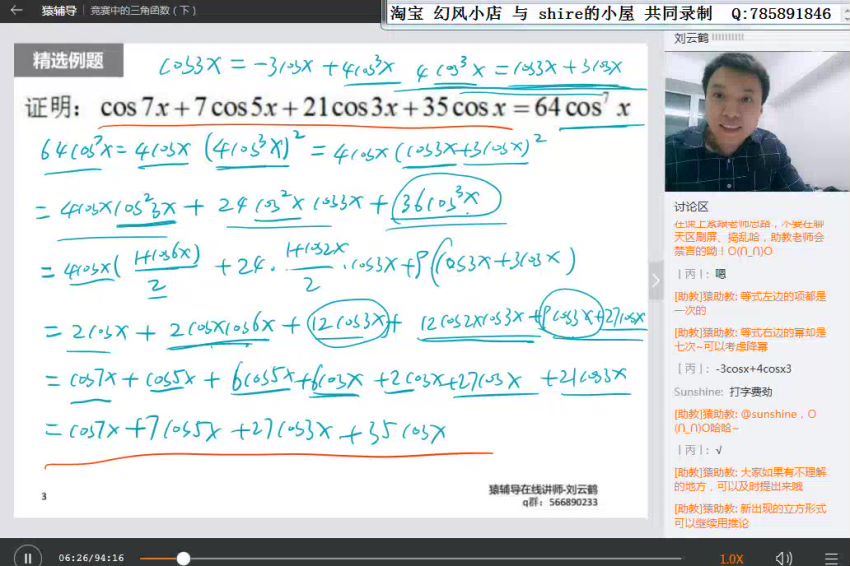 猿辅导 竞赛中的三角函数（下）
淘宝 幻风小店 与 shire的小屋 共同录制 Q:785891846
精选例题
cos3x = -3cosx + 4cos³x 4cos³x = cos3x + 3cosx
证明: cos 7x + 7 cos 5x + 21 cos 3x + 35 cos x = 64 cos⁷ x
64cos⁷x = 4cosx (4cos³x)² = 4cosx (cos3x+3cosx)²
= 4cosx cos²3x + 24 cos²x cos3x + 36cos³x
= 4cosx( (1+cos6x)/2 ) + 24· (1+cos2x)/2 ·cos3x + 9(cos3x+3cosx)
= 2cosx + 2cosxcos6x + 12cos3x + 12cos2xcos3x + 9cos3x + 27cosx
= cos7x + cos5x + 6cos5x + 6cosx + 2cosx + 27cosx + 21cos3x
= cos7x + 7cos5x + 27cos3x + 35cosx
3
猿辅导在线讲师-刘云鹤
q群：566890233
刘云鹤
讨论区
在课上紧跟老师思路，不要在聊
天区刷屏、捣乱哈，助教老师会
禁言的呦！O(∩_∩)O
丨丙丨: 嗯
[助教]猿助教: 等式左边的项都是
一次的
[助教]猿助教: 等式右边的幂却是
七次~可以考虑降幂
丨丙丨: -3cosx+4cosx3
Sunshine: 打字费劲
[助教]猿助教: @sunshine，O
(∩_∩)O哈哈~
丨丙丨: √
[助教]猿助教: 大家如果有不理解
的地方，可以及时提出来哦
[助教]猿助教: 新出现的立方形式
可以继续用推论
06:26/94:16
1.0X